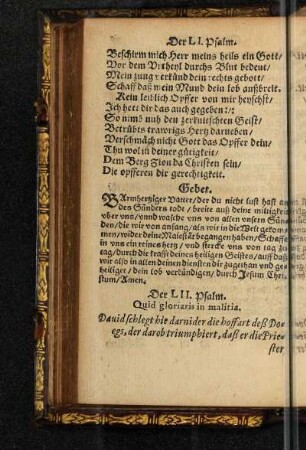 Der LI. Psalm.
Beschirm mich Herr meins heils ein Gott/
Vor dem Vrtheyl durchs Blut bedeut/
Mein zung verkünd dein rechts gebott/
Schaff daß mein Mund dein lob außbreit.
Kein leiblich Opffer von mir heyschst/
Ich hett dir das auch gegeben :/:
So nimb nuh den zerknitschten Geist/
Betrübts trawrigs Hertz darneben/
Verschmäch nicht Gott das Opffer dein/
Thu wol in deiner gütigkeit/
Dem Berg Zion da Christen sein/
Die opfferen dir gerechtigkeit.
Gebet.
BArmhertziger Vatter/der du nicht lust hast an
Des Sünders tode/ breite auß deine
vber vns/ vnnd wasche vns von allen vnsern Sün-
den/die wir von anfang/als wir in die Welt gekom-
men/wider deine Maiestät begangen haben/Schaffe
in vns ein reines hertz/ vnd stercke vns von tag zu
tag/durch die krafft deines heiligen Geistes/auff daß
wir also in allen deinen diensten dir zugethan vnd ge-
heiliget/ dein lob verkündigen/ durch Jesum Chri-
stum/Amen.
Der LII. Psalm.
Quid gloriaris in malitia.
Dauid schlegt hie darnider die hoffart deß Do-
egs, der darob triumphiert, daß er die Prie-
ster